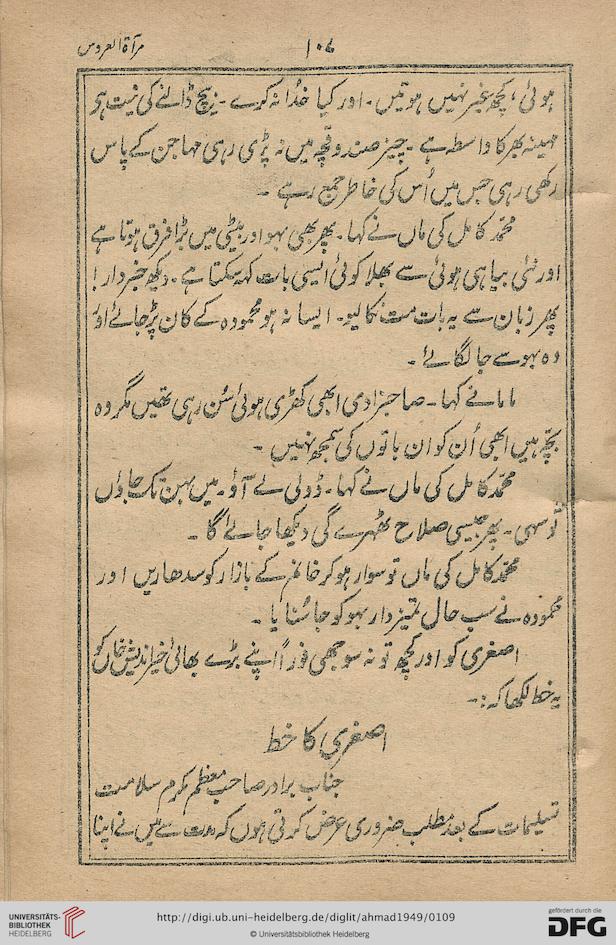 مرآۃ العروس
۱۰۷
ہوئی، کچھ خبر نہیں ہوتیں۔ اور کیا خدا نہ کرے۔ بیچ ڈالنے کی نیت ہو
مہینہ بھر کا واسطہ ہے۔ چیز صندوقچہ میں نہ پڑی رہی مہاجن کے پاس
رکھی رہی جس میں اُس کی خاطر جمع رہے۔
محمد کامل کی ماں نے کہا۔ پھر بھی بہو اور بیٹی میں بڑا فرق ہوتا ہے
اور نئی بیاہی ہوئی سے بھلا کوئی ایسی بات کہہ سکتا ہے۔ دیکھ خبردار!
پھر زبان سے یہ بات مت نکالیو۔ ایسا نہ ہو محمودہ کے کان پڑ جائے اور
وہ بہو سے جا لگائے۔
ماما نے کہا۔ صاحبزادی ابھی کھڑی ہوئی سُن رہی تھیں مگر وہ
بچہ ہیں ابھی اُن کو ان باتوں کی سمجھ نہیں۔
محمد کامل کی ماں نے کہا۔ ڈولی لے آؤ۔ میں بہن تک جاؤں
تو سہی۔ پھر جیسی صلاح ٹھہرے گی دیکھا جائے گا۔
محمد کامل کی ماں تو سوار ہو کر خانم کے بازار کو سدھاریں اور
محمودہ نے سب حال تمیزدار بہو کو جا سُنایا۔
اصغری کو اور کچھ تو نہ سوجھی فوراً اپنے بڑے بھائی خیراندیش خاں کو
یہ خط لکھا کہ:۔
اصغری کا خط
جناب برادر صاحب معظم مکرم سلامت
تسلیمات کے بعد مطلب ضروری عرض کرتی ہوں کہ مدت سے میں نے اپنا
UNIVERSITÄTS-
BIBLIOTHEK
HEIDELBERG
http://digi.ub.uni-heidelberg.de/diglit/ahmad1949/0109
© Universitätsbibliothek Heidelberg
gefördert durch die
DFG